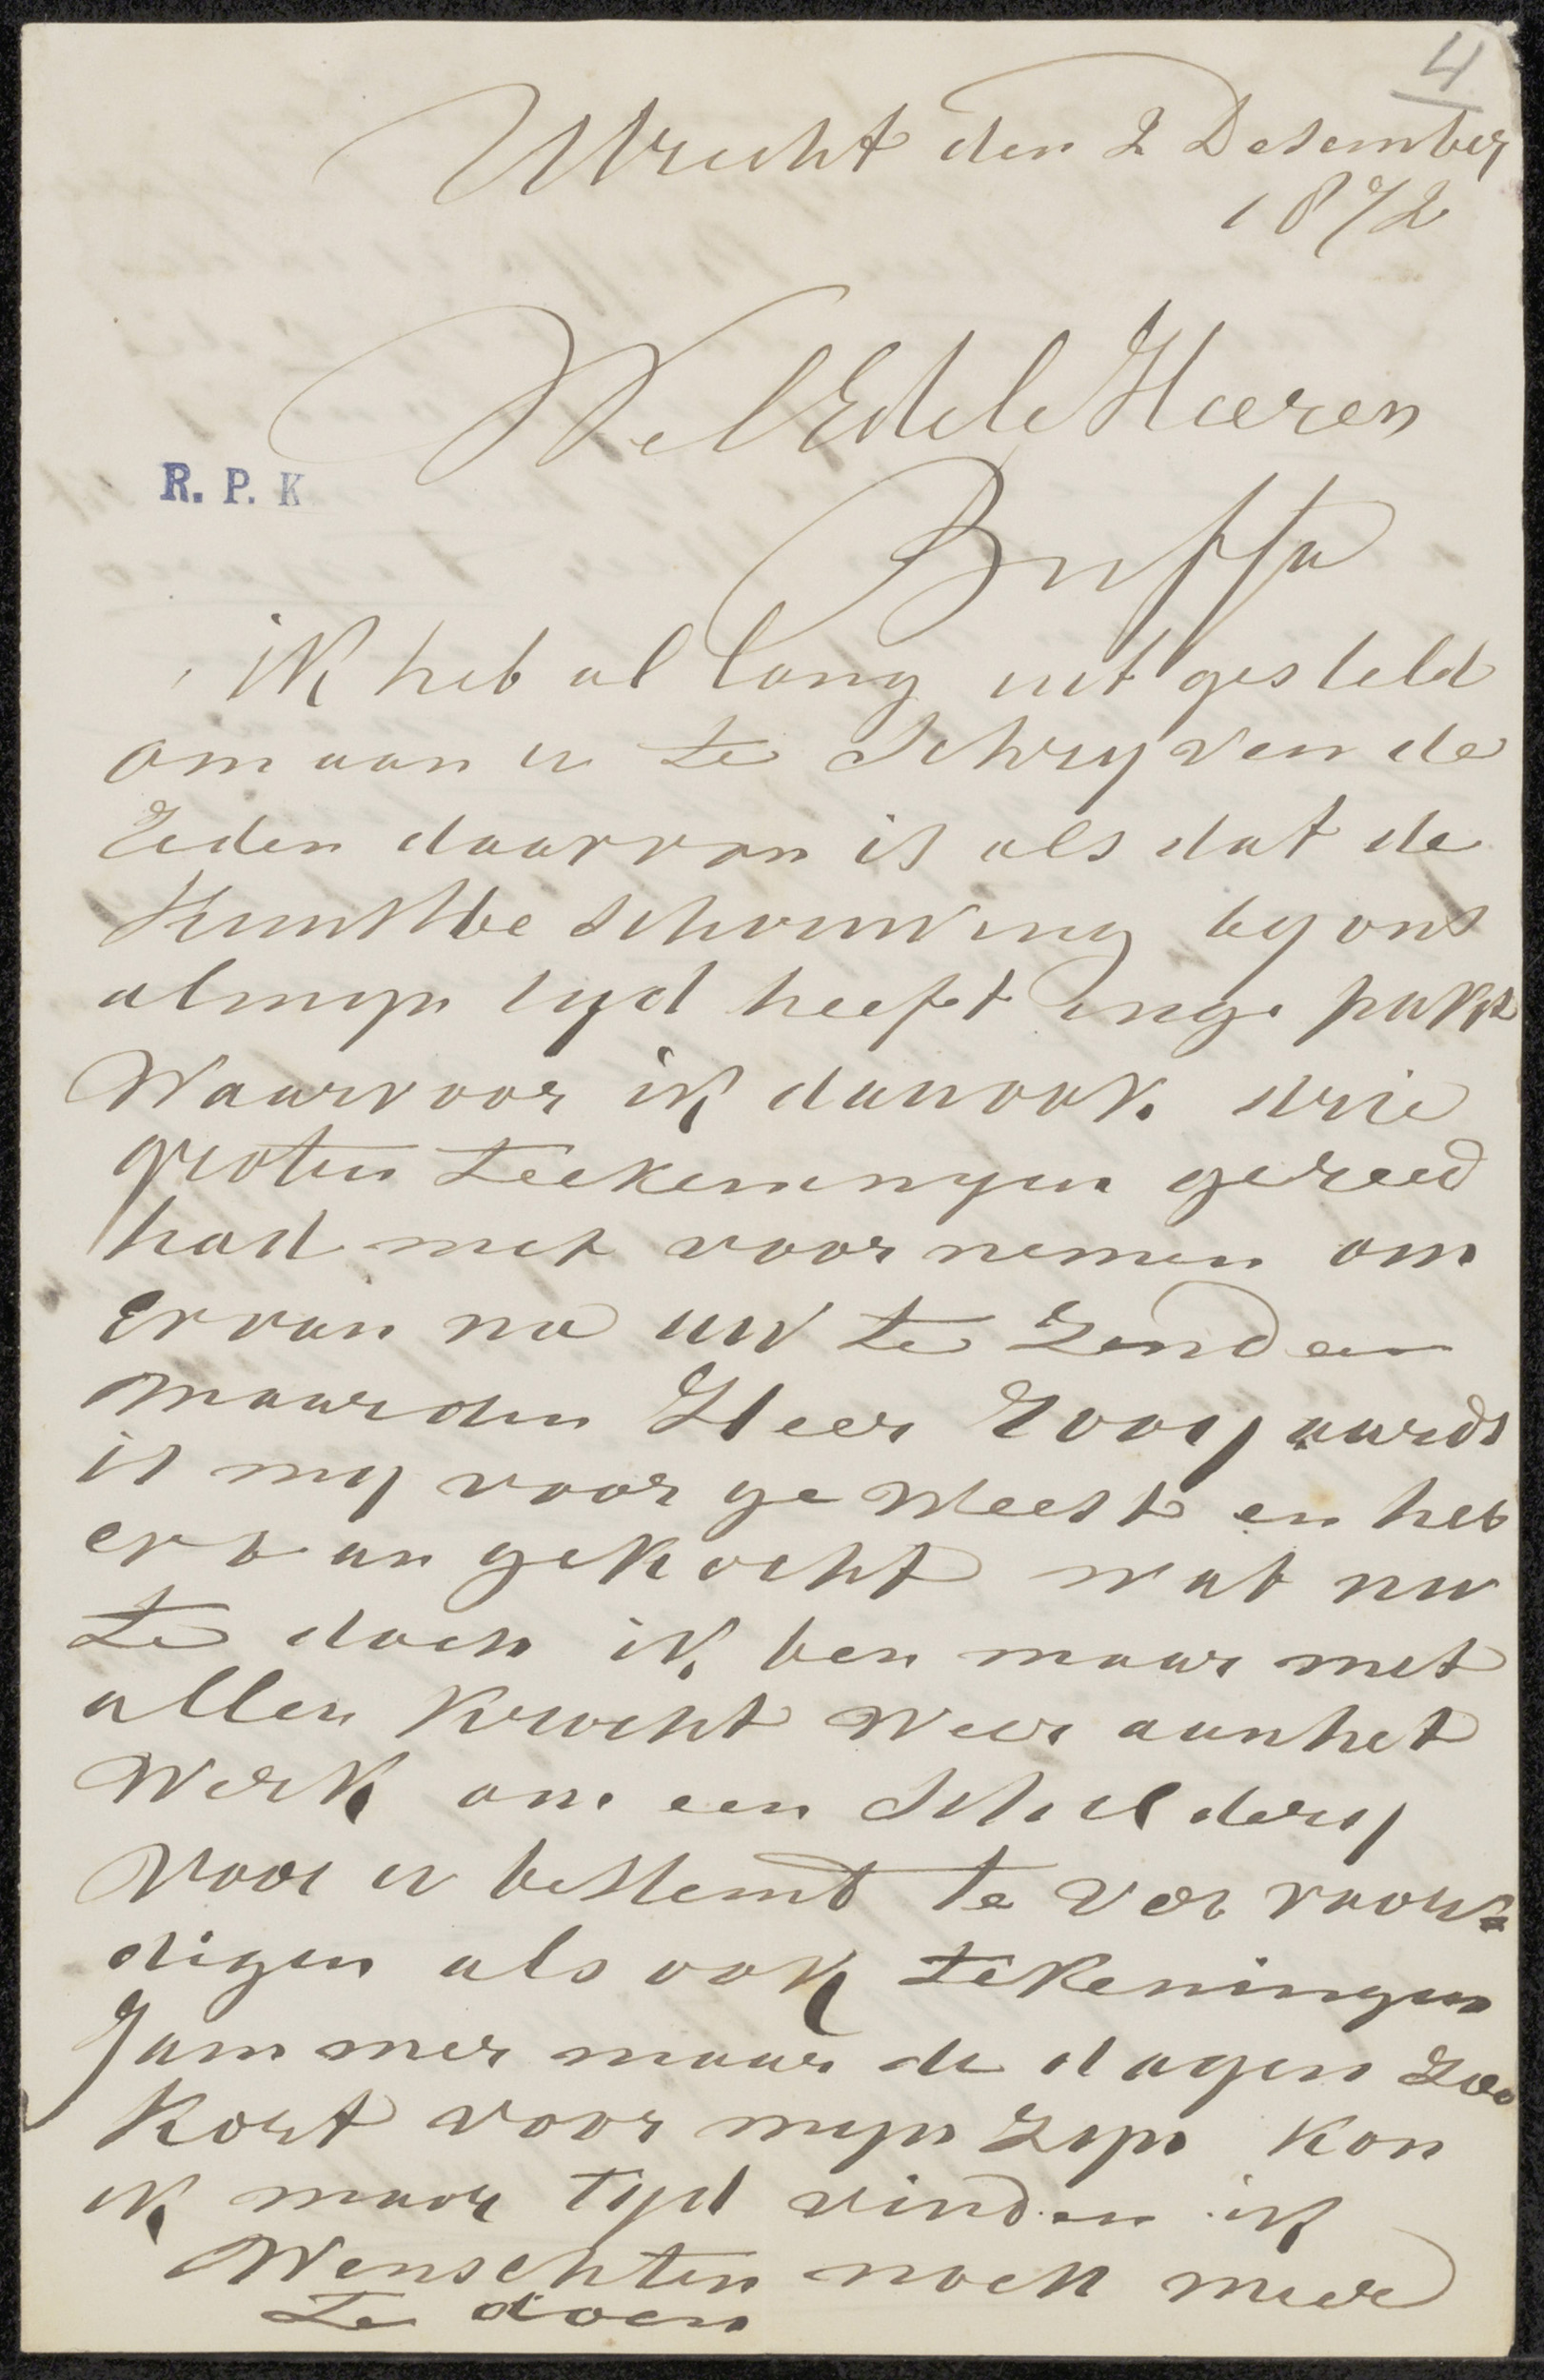 4
Utrecht den 2 Desember
1872
WelEdele Heeren
R. P. K
Buffa
ik heb al lang uit gesteld
om aan u te Schryven de
Reden daarvan is als dat de
Kunstbe schouwing by ons
al myn tyd heeft inge pakt
Waarvoor ik dan ook drie
groten teekeningen gereed
had met voor nemen om
er van na uw te zenden
maar den Heer Rooyaards
is my voor ge weest en heb
er van gekocht wat nu
te doen ik ben maar met
allen kracht weer aan het
Werk om een Schildery
voor u bestemt te ver vaar
digen als ook tekeningen
Jammer maar de dagen zoo
Kort voor myn zyn kon
ik maar tyd vinden ik
Wenschten noch meer
te doen